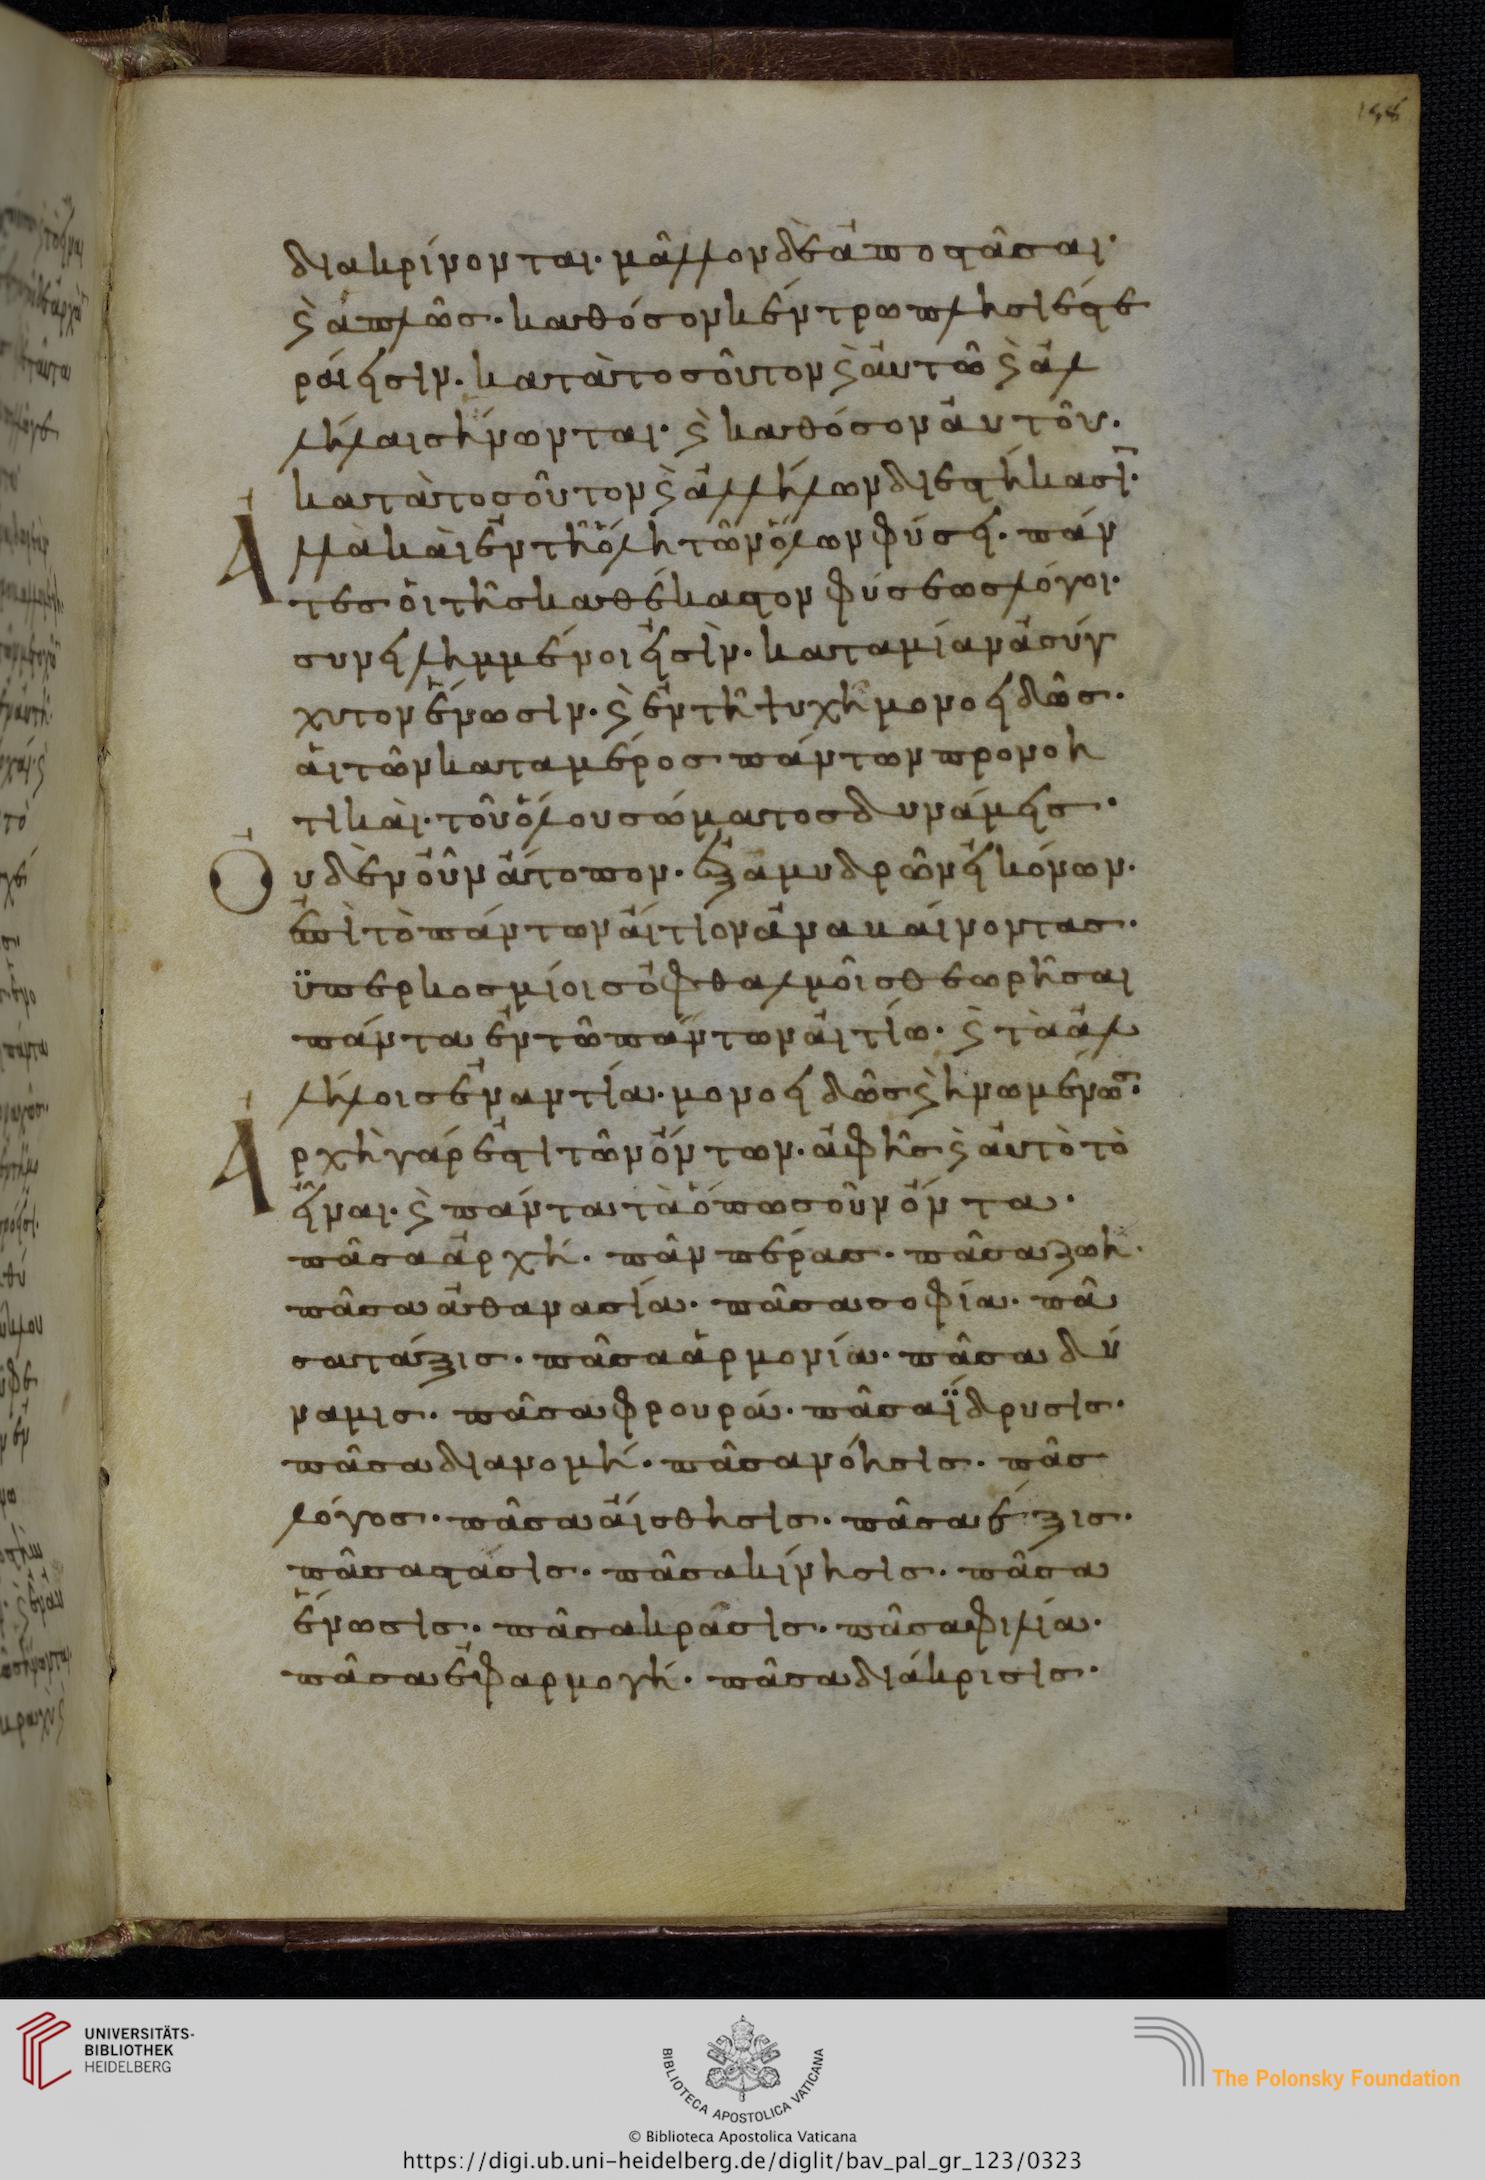 158
διακρίνονται· μᾶλλον δὲ ἀποστᾶσαι·
ϗ̀ ἁπλῶς· καθόσον κέντρω πλησιέστε
ραί εἰσιν· κατὰ τοσοῦτον ϗ̀ ἀυτῶ ϗ̀ ἀλ
λήλαις ἥνωνται· ϗ̀ καθόσον ἀυτοῦ·
κατὰ τοσοῦτον ϗ̀ ἀλλήλων διεστήκασῑ·
Ἀλλὰ κὰι ἐν τῆ ὅλη τῶν ὅλων φύσει· πάν
τες ὁι τῆς καθέκαστον φύσεως λόγοι·
συνειλημμένοι εἰσὶν· κατα μίαν ἀσύγ
χυτον ἕνωσιν· ϗ̀ ἐν τῆ ψυχῆ μονοειδῶς·
ἁι τῶν κατα μέρος πάντων προνοη
τικὰι· τοῦ ὅλου σώματος δυνάμεις·
Ὀυδὲν οὖν ἄτοπον· ἐξ ἀμυδρῶν εἰκόνων·
ἐπὶ τὸ πάντων ἀίτιον ἀναβάινοντας·
ϋπερκοσμίοις ὀφθαλμοῖς θεωρῆσαι
πάντα ἐν τῶ πάντων ἀιτίω· ϗ̀ τὰ ἀλ
λήλοις ἐναντία· μονοειδῶς ϗ̀ ἡνωμένως·
Ἀρχὴ γάρ ἐστι τῶν ὄντων· ἀφ ῆς ϗ̀ ἀυτὸ τὸ
εἶναι· ϗ̀ πάντα τὰ ὁπωσοῦν ὄντα·
πᾶσα ἀρχή· πᾶν πέρας· πᾶσα ζωή·
πᾶσα ἀθανασία· πᾶσα σοφία· πᾶ
σα τάξις· πᾶσα ἁρμονία· πᾶσα δύ
ναμις· πᾶσα φρουρά· πᾶσα ΐδρυσις·
πᾶσα διανομή· πᾶσα νόησις· πᾶς
λόγος· πᾶσα ἀίσθησις· πᾶσα έξις·
πᾶσα στάσις· πᾶσα κίνησις· πᾶσα
ἕνωσις· πᾶσα κρᾶσις· πᾶσα φιλία·
πᾶσα ἐφαρμογή· πᾶσα διάκρισις·
UNIVERSITÄTS-
BIBLIOTHEK
HEIDELBERG
BIBLIOTECA APOSTOLICA VATICANA
© Biblioteca Apostolica Vaticana
The Polonsky Foundation
https://digi.ub.uni-heidelberg.de/diglit/bav_pal_gr_123/0323